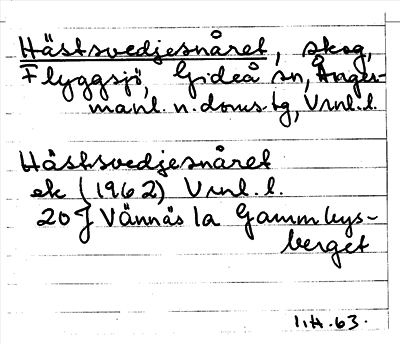 Hästsvedjesnåret, skog,
Flyggsjö, Gideå sn, Ånger-
manl. n. doms.bg, Vrnl. l.
Hästsvedjesnåret
ek (1962) Vrnl. l.
20 Vännäs 1a Gammbys-
berget
I.H. 63.